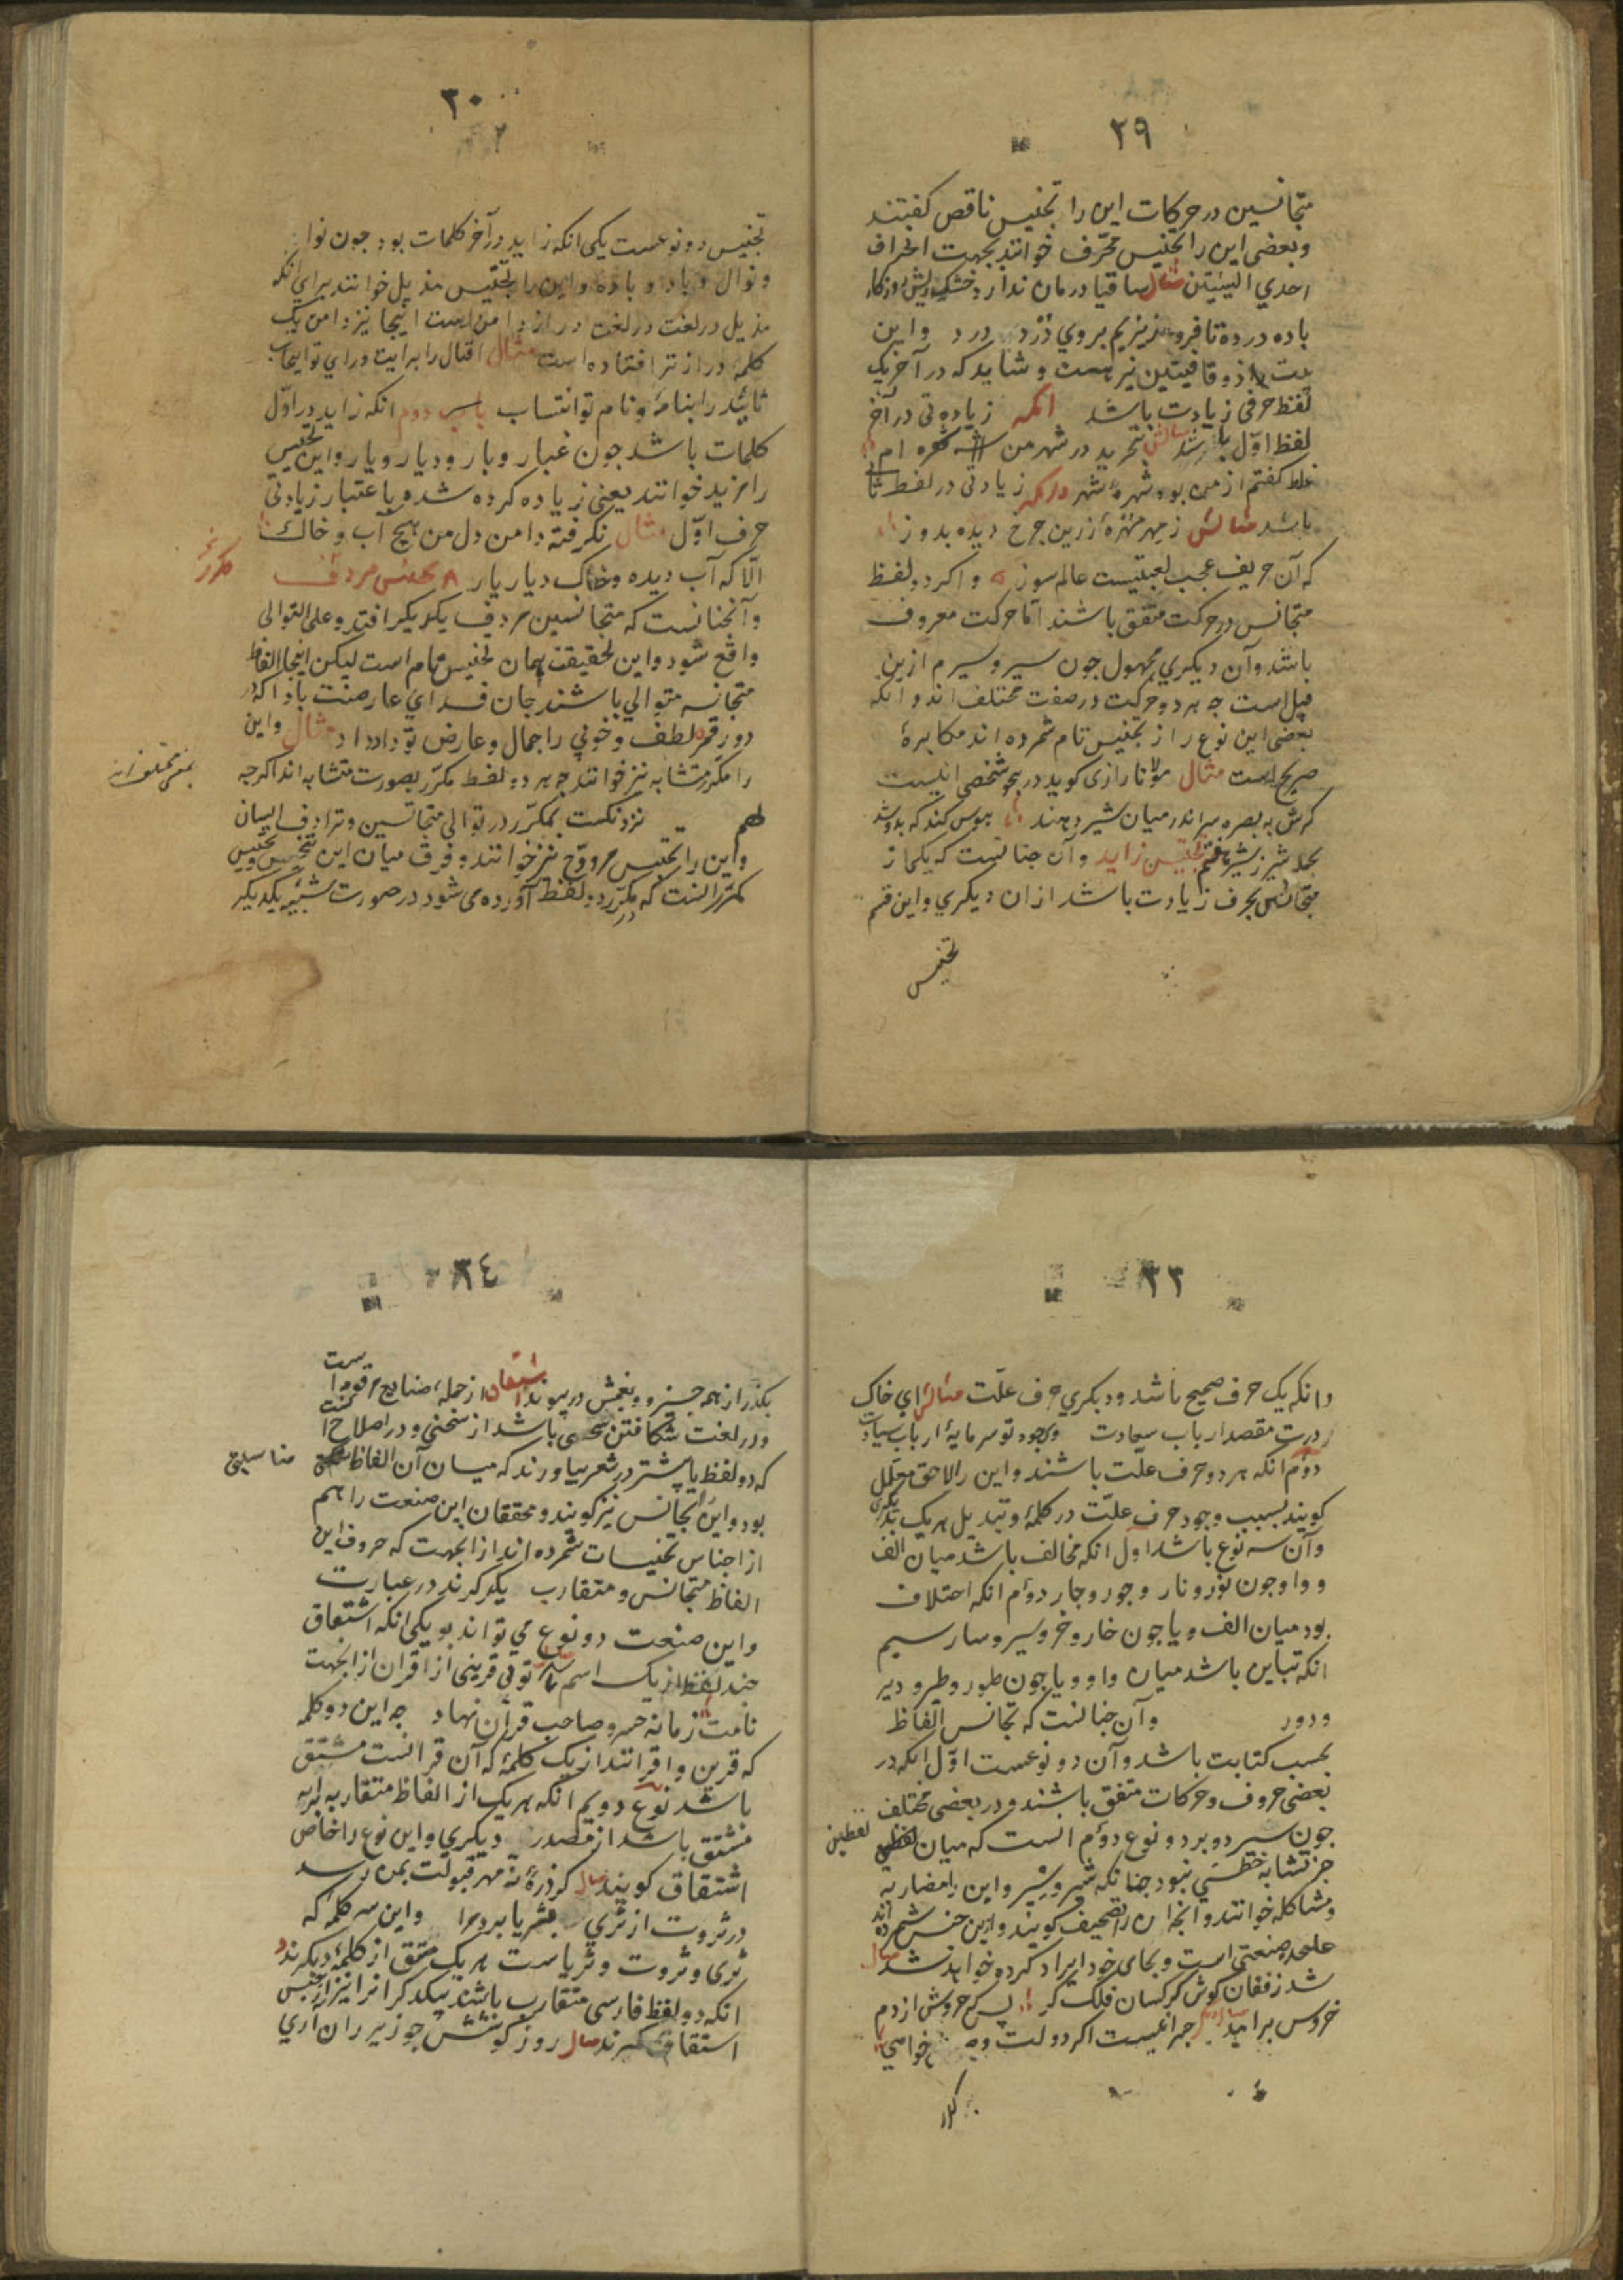 ٢٩
متجانسین در حرکات این را تجنیس ناقص کفتند
وبعضی این را تجنیس محرّف خوانند بجهت انحراف
احدي البیتین مثال ساقیا درمان ندارد خشک روزکار
باده در ده تا فرو ریزیم بروي دَرد دُرد واین
بیت را ذو قافیتین نیز هست و شاید که در آخر یک
لفظ حرفی زیادت باشد انکه زیادتی در آخر
لفظ اوّل باشد مثالش در شهر من شهره ام
غلط کفتم از من بود شهرهٔ شهر وانکه زیادتی در لفظ ثا
باشد مثالش زمهر مهرهٔ زرین چرخ دیده بدوز
که آن حریف عجب لعبتیست عالم سوز واکر دو لفظ
متجانس در حرکت متفق باشند امّا حرکت معروف
باشد وآن دیکري مجهول جون سیر و سیرم ازین
قبیل است جه هر دو حرکت در صفت مختلف اند وانکه
بعضی این نوع را از تجنیس تام شمرده اند مکابرهٔ
صریح است مثال مولانا رازی کوید در هجو شخصی ابیست
کرش به بصره میر اندر میان شیر دهند هوس کند که بدوشد
تجنیس زاید وآن جنانست که یکی از
متجانس بحرف زیادت باشد از آن دیکري واین قسم
تجنیس
٣٠
تجنیس دو نوعست یکی انکه زاید در آخر کلمات بود جون نوا
ونوال و باد و باده واین را تجنیس مذیل خوانند براي انکه
مذیل در لغت دراز دامن است اینجا نیز دامن یک
کلمه درازتر افتاده است مثال اقبال را برایت وراي تو ایجاب
تائید را بنامهٔ ونام تو انتساب دوم انکه زاید در اوّل
کلمات باشد جون غبار و بار و دیار و یار واین تجنیس
را مزید خوانند یعنی زیاده کرده شده باعتبار زیادتی
حرف اوّل مثال نکرفتهٔ دامن دل من هیچ آب وخاک
الّا که آب دیده وخاک دیار یار ٨ تجنیس مردّف
مکرر
وآنجنانست که متجانسین مردف یکدیکر افتد وعلی التوالی
واقع شود واین بحقیقت همان تجنیس تام است لیکن اینجا الفاظ
متجانسه متوالي باشند جان فداي عارضت باد آنکه
دور قمر لطف وخوبي را جمال وعارض تو داد داد مثال واین
را مکرّر متشابه نیز خوانند جه هر دو لفظ مکرّر بصورت متشابه اند اکرجه
بمعنی مختلف اند
نزدنکست بمکرّر در توالی متجانسین وترادف ایسان
واین را تجنیس مزوّج نیز خوانند وفرق میان این تجنیس وتجنیس
مکرّر انست که در مکرّر دو لفظ آورده می شود در صورت شبیه یکدیکر
٣٣
وانکه یک حرف صحیح باشد ودیکري حرف علّت مثالش اي خاک
درت مقصد ارباب سعادت وی جود تو سرمایهٔ ارباب سیادت
دوّم انکه هر دو حرف علّت باشند واین را لاحق معلّل
کویند بسبب وجود حرف علّت در کلمه وتبدیل هر یک بدیکری
وآن سه نوع باشد اول انکه مخالف باشد میان الف
و واو جون نور ونار وجور وجار دوّم انکه اختلاف
بود میان الف و یا جون خار وخیر وسیر وسار سیم
انکه تباین باشد میان واو و یا جون طور وطیر و دیر
ودور وآن جنانست که تجانس الفاظ
بحسب کتابت باشد وآن دو نوعست اوّل انکه در
بعضی حروف وحرکات متفق باشند ودر بعضی مختلف
جون سرد وبرد ونوع دوّم انست که میان لفظین
جز تشابه خطّي نبود جنانکه شیر وسیر واین را مضارعه
ومشاکله خوانند وانجه آن را تصحیف کویند وازین جنس شمرده اند
علحده صنعتی است وبجای خود ایراد کرده خواهد شد مثال
شد زفغان کوش کرکسان فلک کر پس که خروش از دم
خروس برآمد جراغیست اکر دولت خواهي
٣٤
بکذر از همه جیز ونعمتش در پیوند اشتقاق از جمله صنایع مرقومه است
ودر لغت شکافتن سخنی باشد از سخنی ودر اصلاح انست
که دو لفظ یا پیشتر در شعر بیاورند که میان آن الفاظ مناسبتی
بود واین را تجانس نیز کویند ومحققان این صنعت را هم
از اجناس تجنیسات شمرده اند از انجهت که حروف این
الفاظ متجانس ومتقارب یکدیکرند در عبارت
واین صنعت دو نوع می تواند بود یکی انکه اشتقاق
جند لفظ از یک اسم توئی قرینی از اقران از انجهت
نامت زمانه خسرو صاحب قران نهاد جه این دو کلمه
که قرین واقرانند از یک کلمهٔ که آن قرانست مشتق
باشد نوع دویم انکه هر یک از الفاظ متقاربه
مشتق باشد از مصدر دیکري واین نوع را خاص
اشتقاق کویند مثال کر ذرّهٔ زمهر قبولت بمن رسد
در ثروت از ثري بثریا برد مرا واین سه کلمه که
ثری وثروت وثریاست هر یک مشتق از کلمهٔ دیکرند
انکه دو لفظ فارسی متقارب باشند بیکدکر انرا نیز از جنس
اشتقاق کیرند مثال روز کوشش جو زیر ران آري